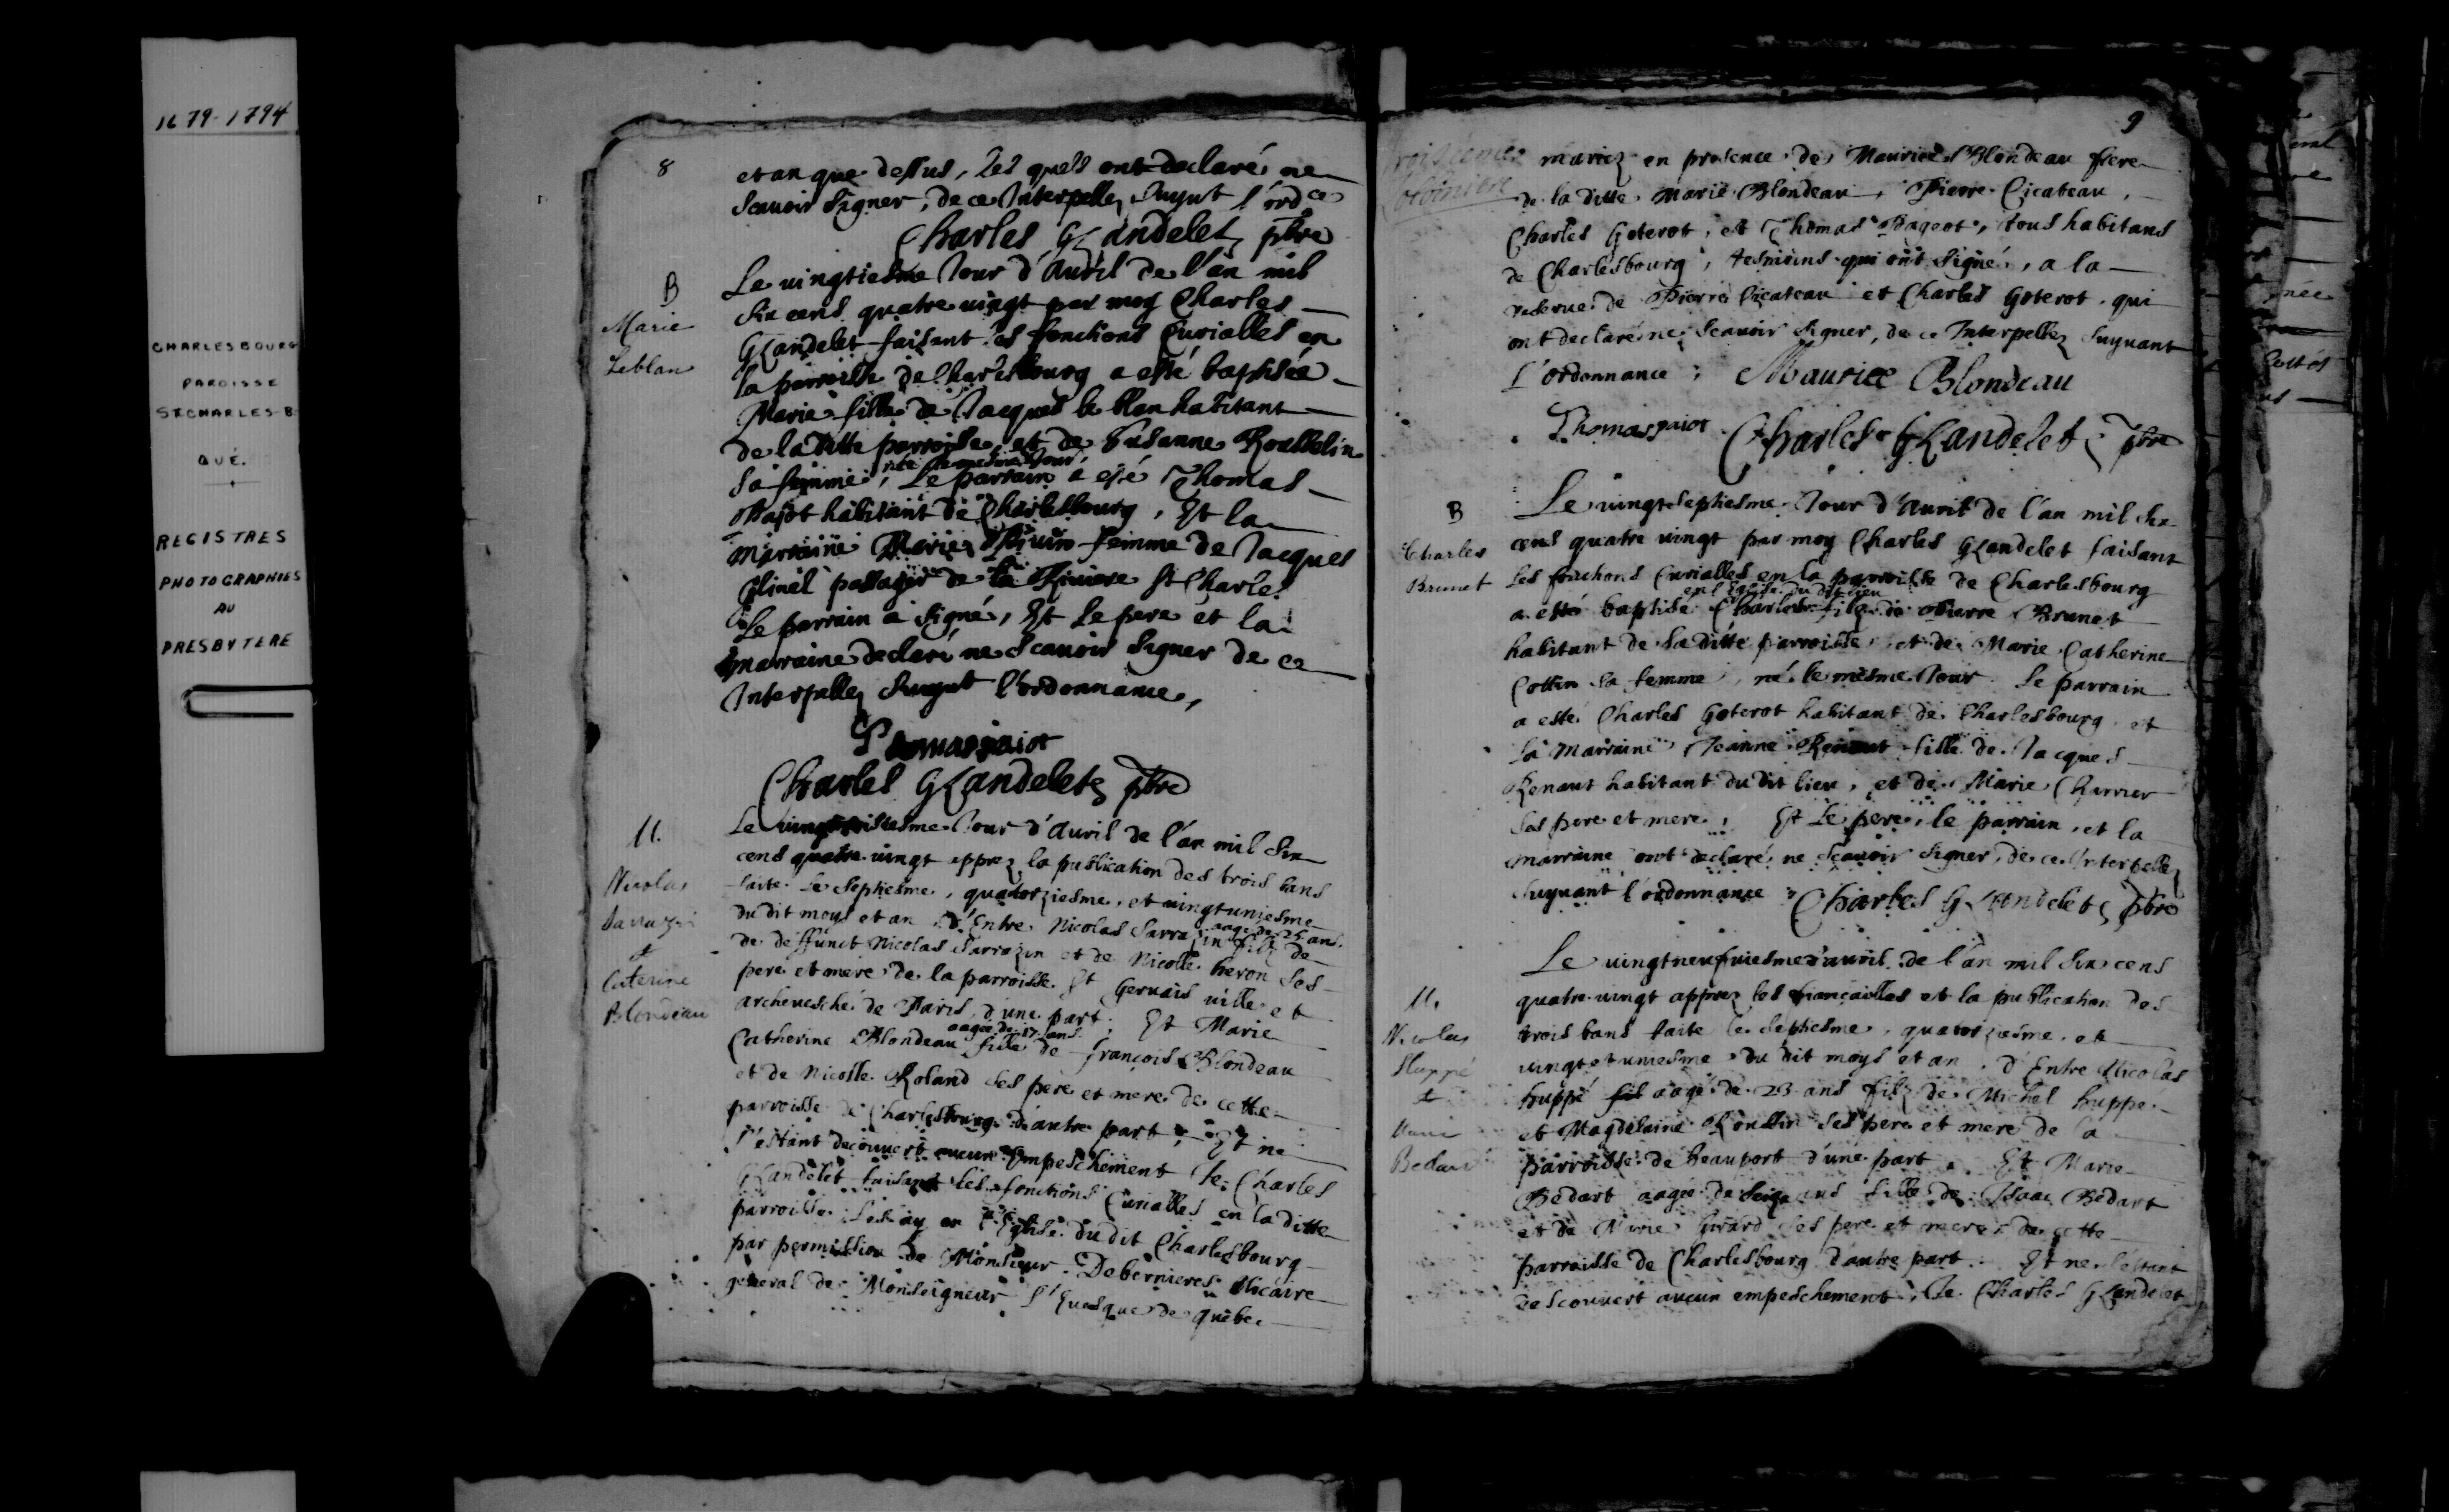 1679-1794
CHARLESBOURG
PAROISSE
ST.CHARLES-B
QUÉ.
REGISTRES
PHOTOGRAPHIES
AU
PRESBYTERE
8
et an que dessus, Les quels ont declaré ne
scauoir signer, de ce Interpellez suyut l'ordce
Charles Glandelet ptre
B
Marie
Leblan
Le uingtiesme Jour d'auril de l'an mil
six cens quatre uingt par moy Charles
Glandelet faisant les fonctions Curialles en
la parroisse de Charlesbourg a esté baptisée
Marie fille de Jacques le blan habitant
de la ditte parroisse, et de Susanne Rousselin
née le mesme Jour,
sa femme, Le parrain a esté Thomas
Pajot habitant de Charlesbourg, Et la
marraine Marie femme de Jacques
Glinel passager de la Riuiere St Charles
Le parrain a signé, Et Le pere et la
marraine declaré ne scauoir signer de ce
Interpellez suyut l'ordonnance,
Thomas paiot
Charles Glandelet ptre
M.
Nicolas
Sarrazin
&
Caterine
Blondeau
Le Jour d'auril de l'an mil six
cens quatre uingt apprez la publication des trois bans
faite le septiesme, quatorziesme, et uingtuniesme
du dit moys et an d'Entre Nicolas Sarrazin filz de
aagé de 25 ans.
de deffunct Nicolas Sarrazin et de Nicolle heron ses
pere et mere de la parroisse St Geruais uille et
archeuesché de Paris d'une part; Et Marie
aagée de 17 ans.
Catherine Blondeau fille de françois Blondeau
et de Nicolle Roland ses pere et mere de cette
parroisse de Charlesbourg d'autre part; Et ne
s'estant decouuert aucun Empeschement Je Charles
Glandelet faisant les fonctions Curialles en la ditte
parroisse Les ay en l'Eglise du dit Charlesbourg
par permission de Monsieur Debernieres Vicaire
general de Monseigneur l'Euesque de quebec
9
mariez en presence de Maurice Blondeau frere
de la ditte Marie Blondeau, Pierre Cicateau,
Charles Goterot, et Thomas Pageot, tous habitans
de Charlesbourg, tesmoins qui ont signé, a la
reserue de Pierre Cicateau et Charles Goterot qui
ont declaré ne scauoir signer, de ce Interpellez suyuant
L'ordonnance; Maurice Blondeau
Thomas paiot Charles Glandelet Ptre
B
Charles
Brunet
Le uingtseptiesme Jour d'auril de l'an mil six
cens quatre uingt par moy Charles Glandelet faisant
les fonctions Curialles en la parroisse de Charlesbourg
en l'Eglise du dit lieu
a esté baptisé Charles filz de Pierre Brunet
habitant de la ditte parroisse, et de Marie Catherine
Cottin sa femme, né le mesme Jour. Le parrain
a esté Charles Goterot habitant de Charlesbourg, et
la Marraine Jeanne Renaut fille de Jacques
Renaut habitant du dit lieu, et de Marie Charrier
ses pere et mere, Et Le pere, le parrain, et la
marraine ont declaré ne scauoir signer, de ce Interpellez
suyuant l'ordonnance; Charles Glandelet Ptre
M.
Nicolas
Huppé
&
Marie
Bedard
Le uingtneufuiesme d'auril de l'an mil six cens
quatre uingt apprez les fiançailles et la publication des
trois bans faite le septiesme, quatorziesme, et
uingtetuniesme du dit moys et an, d'Entre Nicolas
huppé fil aagé de 23 ans filz de Michel huppé
et Magdelaine Roussin ses pere et mere de la
parroisse de beauport d'une part, Et Marie
Bedart aagée de seize ans fille de Isaac Bedart
et de Marie Girard ses pere et mere de cette
parroisse de Charlesbourg d'autre part. Et ne s'estant
descouuert aucun empeschement, Je Charles Glandelet